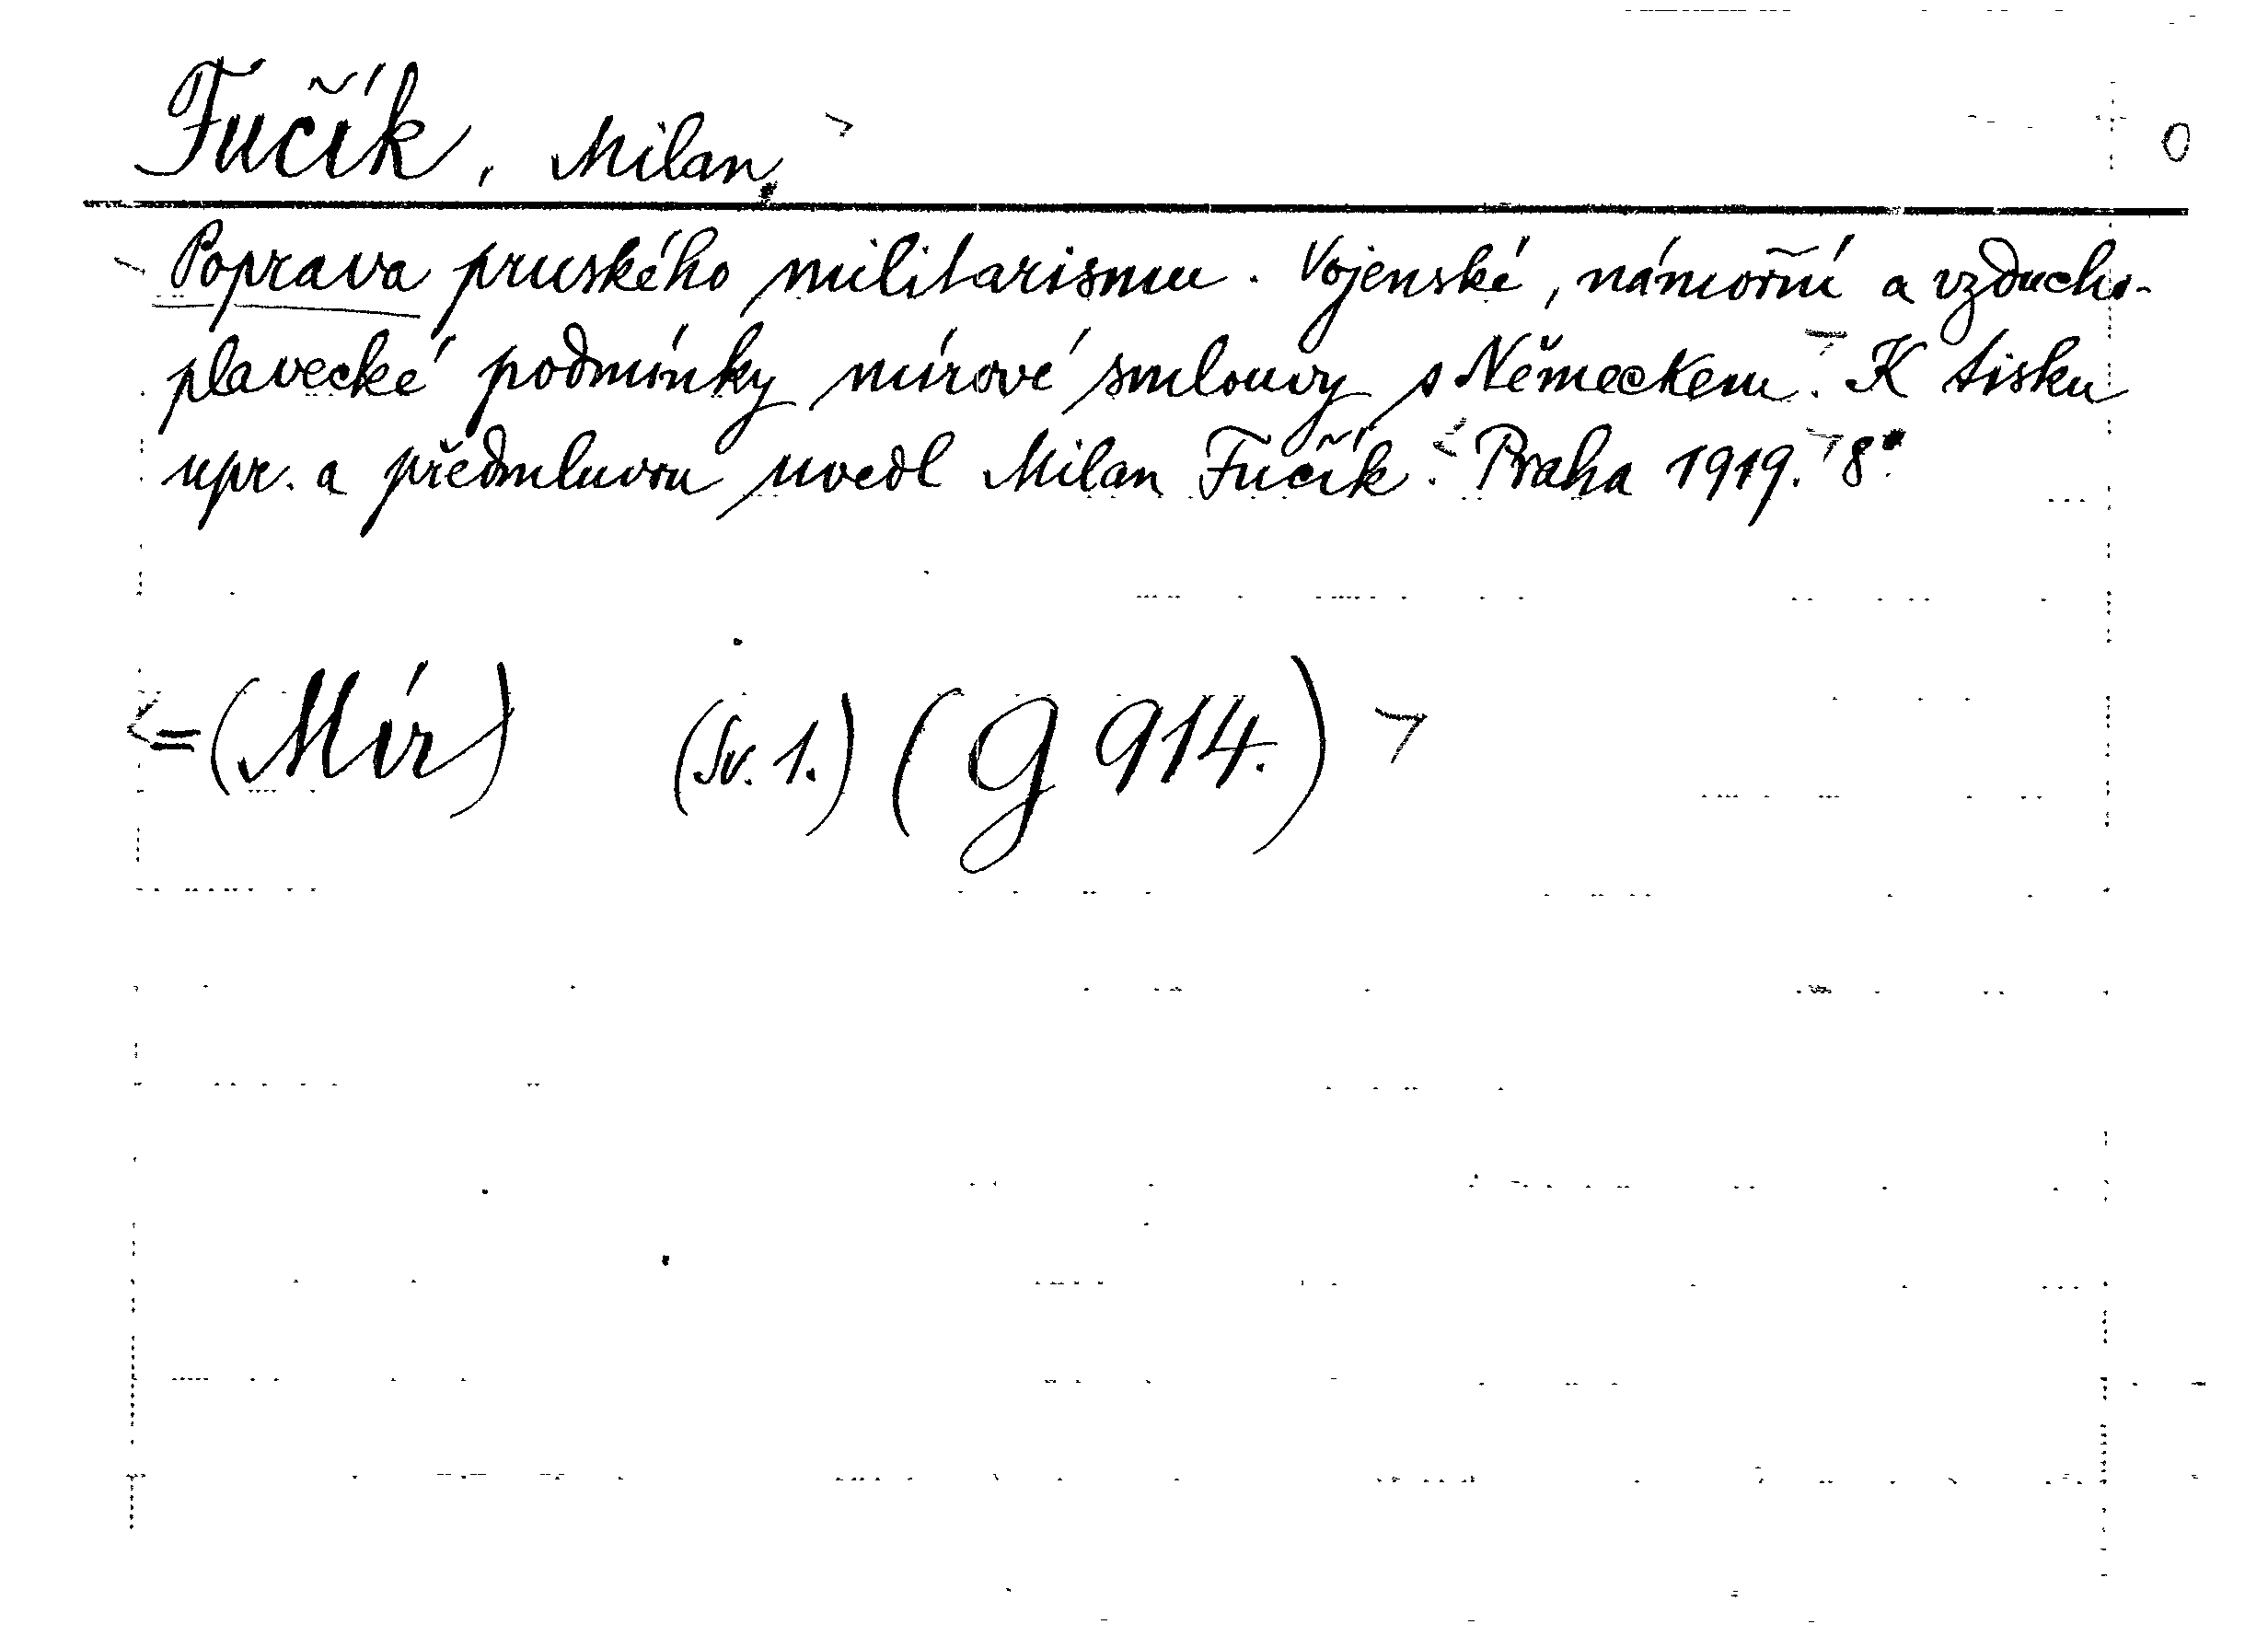 Fučík, Milan. 0
Poprava pruského militarismu. Vojenské, námořní a vzducho-
plavecké podmínky mírové smlouvy s Německem. K tisku
upr. a předmluvou uvedl Milan Fučík. Praha 1919. 8°.
=(Mír) (Sv. 1.) (G 914.)